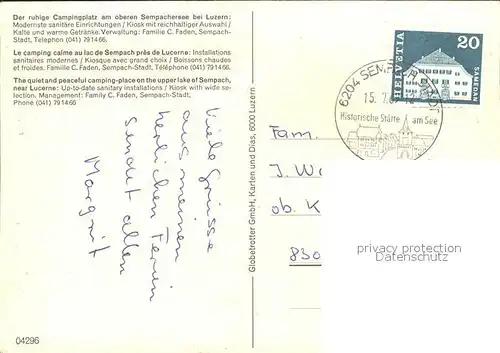 Der ruhige Campingplatz am oberen Sempachersee bei Luzern:
Modernste sanitäre Einrichtungen / Kiosk mit reichhaltiger Auswahl /
Kalte und warme Getränke. Verwaltung: Familie C. Faden, Sempach-
Stadt, Telephon (041) 791466.
Le camping calme au lac de Sempach près de Lucerne: Installations
sanitaires modernes / Kiosque avec grand choix / Boissons chaudes
et froides. Famille C. Faden, Sempach-Stadt, Téléphone (041) 791466.
The quiet and peaceful camping-place on the upper lake of Sempach,
near Lucerne: Up-to-date sanitary installations / Kiosk with wide se-
lection. Management: Family C. Faden, Sempach-Stadt,
Phone (041) 791466
Viele Grüsse
aus meinen
herrlichen Ferien
sendet allen
Margrit
04296
Globetrotter GmbH, Karten und Dias, 6000 Luzern
HELVETIA
20
SARNEDAN
6204
15. 7.
Historische Stätte am See
Fam.
J. W
ob. K
830
privacy protection
Datenschutz